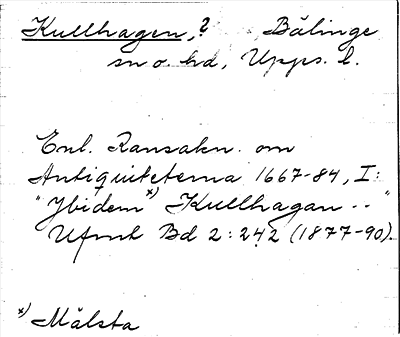 Kullhagen,? Bälinge
sn o. hd, Upps. l.
Enl. Ransakn. om
Antiquiteterna 1667-84, I:
"Ibidem x) Kullhagan --"
Ufmt Bd 2:242 (1877-90).
x) Målsta